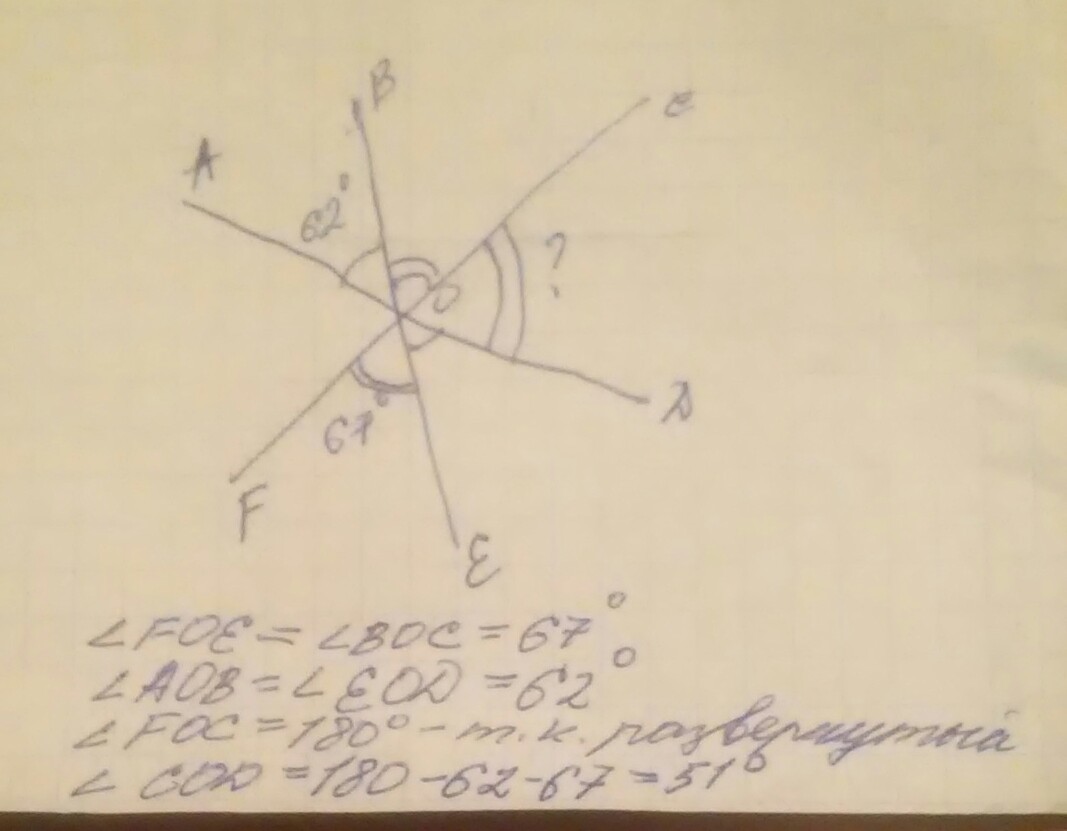 B
C
A
62°
O
?
D
67°
F
E
∠FOE = ∠BOC = 67°
∠AOB = ∠EOD = 62°
∠FOC = 180° - т.к. развернутый
∠COD = 180 - 62 - 67 = 51°